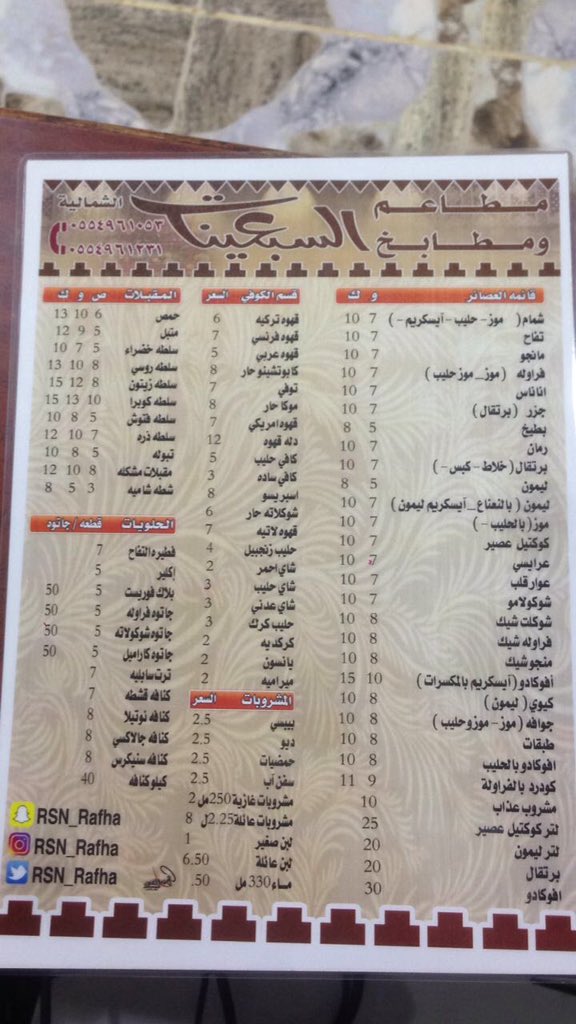 مطاعم
ومطابخ
السبعينات
الشمالية
٠٥٥٤٩٦١٠٥٣
٠٥٥٤٩٦١٢٣١
قائمه العصائر و ك
شمام ( موز-حليب-آيسكريم- ) 7 10
تفاح 7 10
مانجو 7 10
فراوله ( موز_موزحليب ) 7 10
اناناس 7 10
جزر ( برتقال ) 7 10
بطيخ 5 8
رمان 7 10
برتقال ( خلاط-كبس- ) 7 10
ليمون 5 8
ليمون ( بالنعناع_آيسكريم ليمون ) 7 10
موز ( بالحليب- ) 7 10
كوكتيل عصير 7 10
عرايسي 7 10
عوار قلب 7 10
شوكولامو 7 10
شوكلت شيك 8 10
فراوله شيك 8 10
منجو شيك 8 10
أفوكادو ( آيسكريم بالمكسرات ) 10 15
كيوي ( ليمون ) 8 10
جوافه ( موز-موزوحليب ) 8 10
طبقات 8 10
افوكادو بالحليب 8 10
كودرد بالفراولة 9 11
مشروب عذاب 10
لتر كوكتيل عصير 25
لتر ليمون 20
برتقال 20
افوكادو 30
قسم الكوفي السعر
قهوه تركيه 6
قهوه فرنسي 7
قهوه عربي 5
كابوتشينو حار 8
توفي 7
موكا حار 8
قهوه امريكي 7
دله قهوه 12
كافي حليب 5
كافي ساده 3
اسبريسو 8
شوكلاته حار 6
قهوه لاتيه 7
حليب زنجبيل 4
شاي احمر 2
شاي حليب 3
شاي عدني 3
حليب كرك 3
كركديه 2
يانسون 2
ميراميه 2
المشروبات السعر
بيبسي 2.5
ديو 2.5
حمضيات 2.5
سفن آب 2.5
مشروبات غازية 250مل 2
مشروبات عائلة 2.25ل 8
لبن صغير 1
لبن عائلة 6.50
ماء 330 مل .50
المقبلات ص و ك
حمص 6 10 13
متبل 5 9 12
سلطه خضراء 5 7 10
سلطه روسي 8 10 13
سلطه زيتون 8 12 15
سلطه كوبرا 10 13 15
سلطه فتوش 5 8 10
سلطه ذره 7 10 12
تبوله 5 8 10
مقبلات مشكله 8 10 12
شطه شاميه 3 5 8
الحلويات قطعه / جاتوه
فطيره التفاح 7
إكلير 5
بلاك فوريست 5 50
جاتوه فراوله 5 50
جاتوه شوكولاته 5 50
جاتوه كاراميل 5 50
ترت سابليه 7
كنافه قشطه 7
كنافه نوتيلا 8
كنافه جالاكسي 8
كنافه سنيكرس 8
كيلو كنافه 40
RSN_Rafha
RSN_Rafha
RSN_Rafha